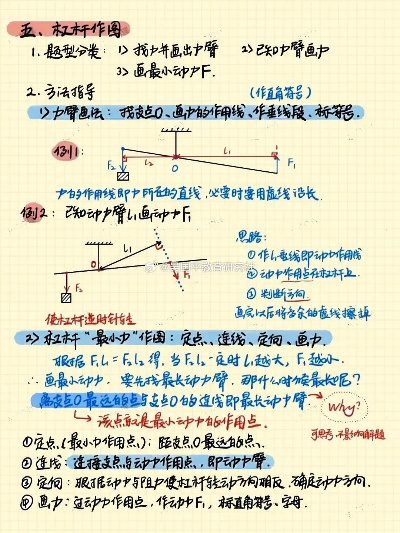 五、杠杆作图
1. 题型分类: 1) 找力并画出力臂 2) 已知力臂画力
3) 画最小动力F.
2. 方法指导 (作直角符号)
1) 力臂画法: 找支点O、画力的作用线、作垂线段、标符号.
例1:
F₂ l₂ O l₁ F₁
力的作用线即力所在的直线, 必要时要用虚线延长
例2: 已知动力臂l₁画动力F₁
思路:
l₁
①作l₁垂线即动力作用线
②动力作用点在杠杆上
O F₁
③判断方向
F₂
画完以后将多余的虚线擦掉
使杠杆逆时针转
2) 杠杆"最小力"作图: 定点、连线、定向、画力.
根据F₁l₁=F₂l₂得, 当F₂l₂一定时l₁越大, F₁越小.
∴画最小动力, 要先找最长动力臂. 那什么时候最长呢?
离支点O最远的点与支点O的连线即最长动力臂 → Why?
↳ 该点就是最小动力的作用点.
①定点(最小力作用点): 距支点O最远的点.
②连线: 连接支点与动力作用点, 即动力臂.
③定向: 根据动力与阻力使杠杆转动方向相反, 确定动力方向.
④画力: 过动力作用点, 作动力F₁, 标直角符号、字母.